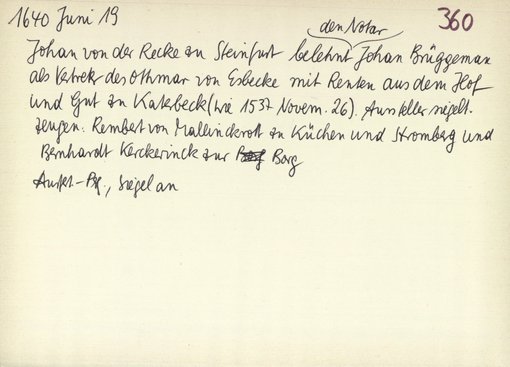 1640 Juni 19
360
Johan von der Recke zu Steinfurt belehnt den Notar Johan Brüggeman
als Vetrek. des Othmar von Esbecke mit Renten aus dem Hof
und Gut zu Katzbeck (wie 1537 Novem. 26). Aussteller siegelt.
Zeugen: Rembert von Mallinckrott zu Küchen und Stromberg und
Bernhardt Kerckerinck zur Borg
Ausf.-Pg., Siegel an